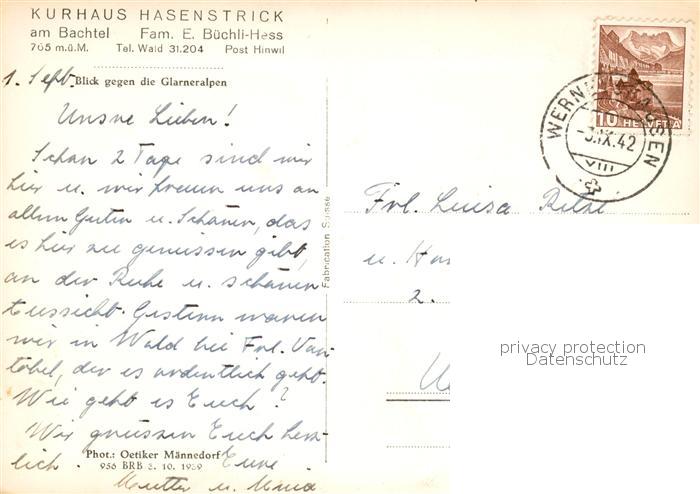 KURHAUS HASENSTRICK
am Bachtel Fam. E. Büchli-Hess
765 m.ü.M. Tel. Wald 31.204 Post Hinwil
1. Sept. Blick gegen die Glarneralpen
Unsre Lieben!
Schon 2 Tage sind wir
hier u. wir freuen uns an
allem Guten u. Schönen, das
es hier zu geniessen gibt,
an der Ruhe u. schönen
Aussicht. Gestern waren
wir in Wald bei Frl. Van
tobel, der es ordentlich geht.
Wie geht es Euch?
Wir grüssen Euch herz-
lich. Eure
Mutter u.
Phot.: Oetiker Männedorf
956 BRB 3. 10. 1939
Fabrication Suisse
HELVETIA
10
WERN
SEN
-3.IX.42
VIII
Frl. Luisa
u.
2.
privacy protection
Datenschutz